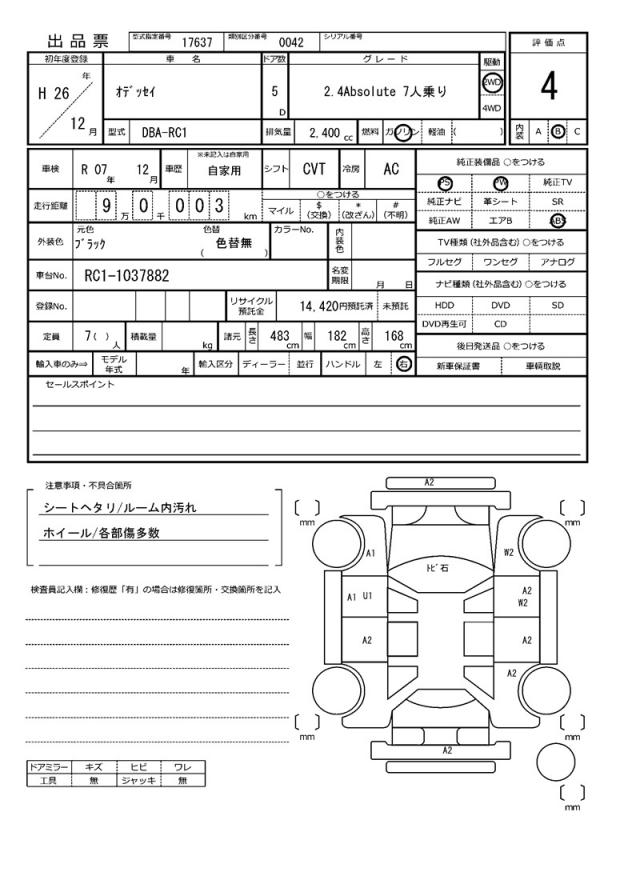 出品票 型式指定番号 17637 類別区分番号 0042 シリアル番号
初年度登録 車 名 ドア数 グレード 駆動 評価点
H 26 年 12 月 ｵﾃﾞｯｾｲ 5 D 2.4Absolute 7人乗り 2WD 4WD 4
型式 DBA-RC1 排気量 2,400 cc 燃料 ガソリン 軽油 ( ) 内装 A B C
車検 R 07 年 12 月 車歴 ※未記入は自家用 自家用 シフト CVT 冷房 AC
走行距離 9 万 0 千 0 0 3 km
○をつける
マイル $ (交換) * (改ざん) # (不明)
外装色 元色 ﾌﾞﾗｯｸ 色替 色替無 ( ) カラーNo. 内装色
車台No. RC1-1037882 名変期限 月 日
登録No. リサイクル預託金 14,420円預託済 未預託
定員 7( ) 人 積載量 kg 諸元 長さ 483 cm 幅 182 cm 高さ 168 cm
輸入車のみ⇒ モデル年式 年 輸入区分 ディーラー 並行 ハンドル 左 右
純正装備品 ○をつける
PS PW 純正TV
純正ナビ 革シート SR
純正AW エアB ABS
TV種類 (社外品含む) ○をつける
フルセグ ワンセグ アナログ
ナビ種類 (社外品含む) ○をつける
HDD DVD SD
DVD再生可 CD
後日発送品 ○をつける
新車保証書 車輌取説
セールスポイント
注意事項・不具合箇所
シートヘタリ/ルーム内汚れ
ホイール/各部傷多数
検査員記入欄：修復歴「有」の場合は修復箇所・交換箇所を記入
ドアミラー キズ ヒビ ワレ
工具 無 ジャッキ 無
A2
[ ] mm [ ] mm
A1 W2
ﾄﾋﾞ石
A1 U1 A2 W2
A2 A2
A2
[ ] mm [ ] mm
A2
[ ] mm